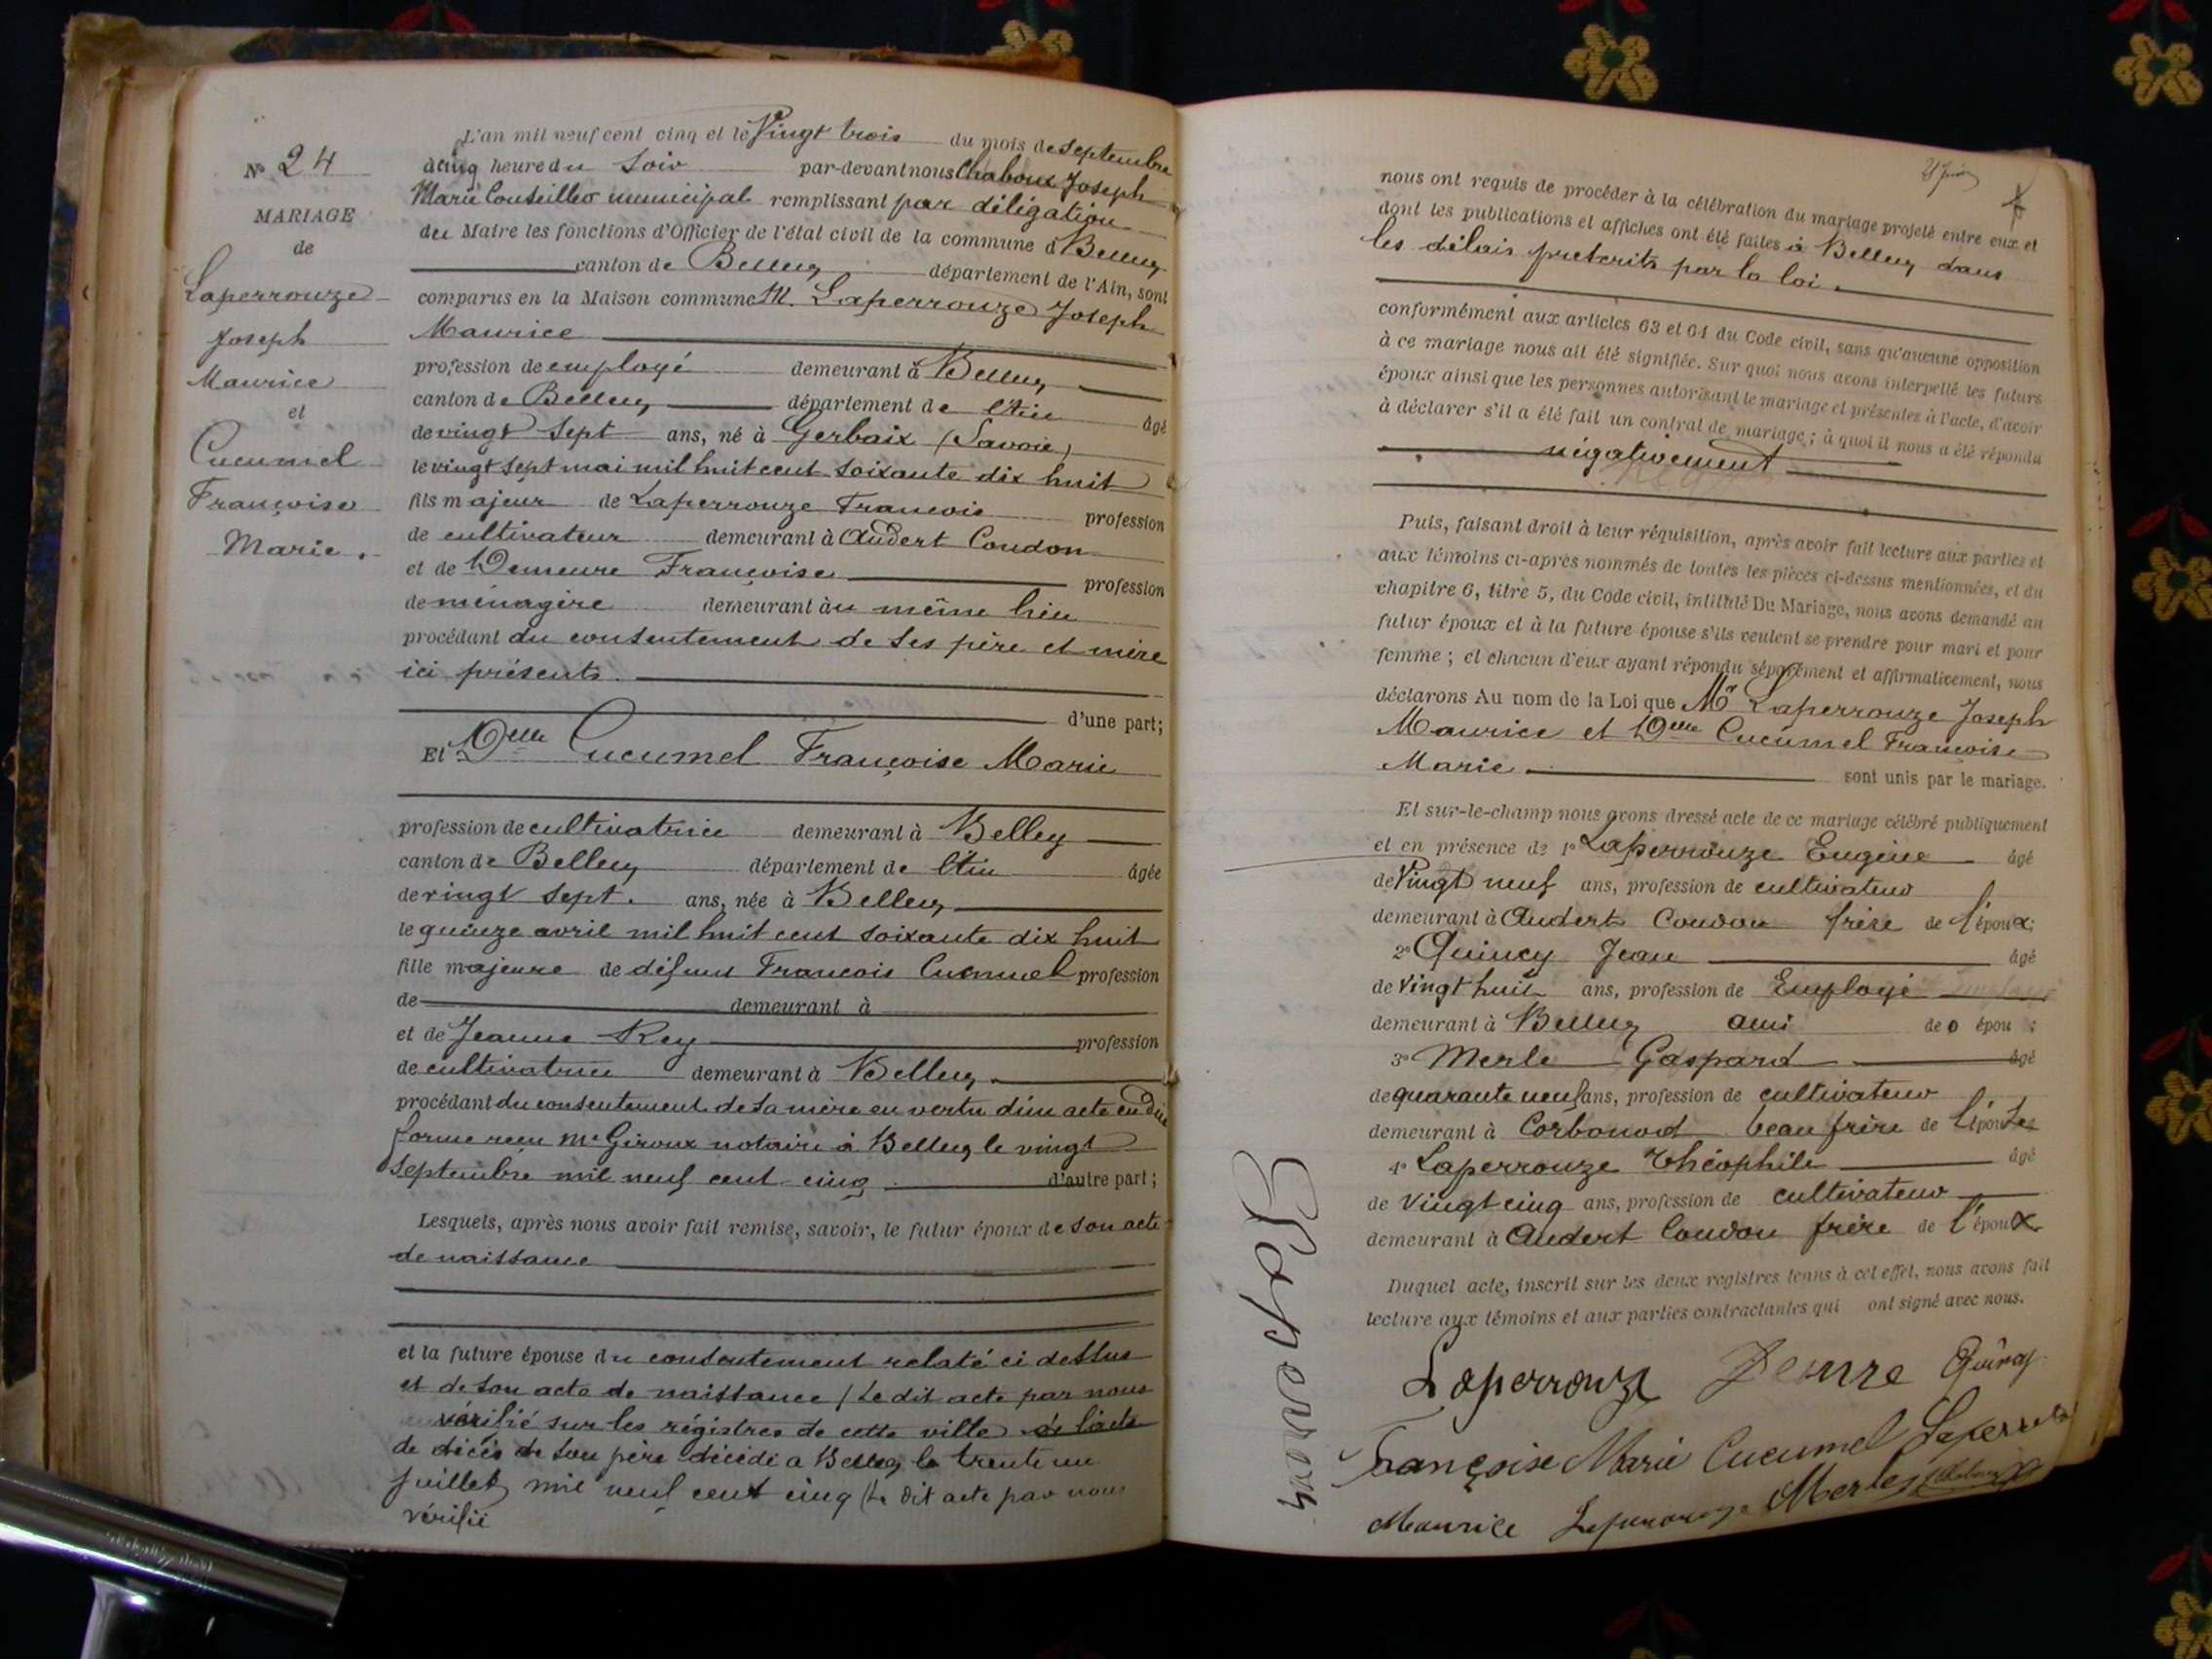 L'an mil neuf cent cinq et le Vingt trois du mois de septembre
à cinq heure du soir par-devant nous Chaboux Joseph
Marie Conseiller municipal remplissant par déligation
du Maire les fonctions d'Officier de l'état civil de la commune d Belley
canton de Belley département de l'Ain, sont
comparus en la Maison commune M. Laperrouze Joseph
Maurice
profession de employé demeurant à Belley
canton de Belley département de l'Ain âgé
de vingt sept ans, né à Gerbaix (Savoie)
le vingt sept mai mil huit cent soixante dix huit
fils majeur de Laperrouze Francois profession
de cultivateur demeurant à Andert Condon
et de Demeure Françoise profession
de ménagère demeurant àu même lieu
procédant du consentement de ses père et mère
ici présents.
d'une part;
Et Delle Cucumel Françoise Marie
profession de cultivatrice demeurant à Belley
canton de Belley département de l'Ain âgée
de vingt sept. ans, née à Belley
le quinze avril mil huit cent soixante dix huit
fille majeure de défunt Francois Cucumel profession
de demeurant à
et de Jeanne Rey profession
de cultivatrice demeurant à Belley
procédant du consentement de sa mère en vertu d'un acte en due
forme reçu Me Giroux notaire à Belley le vingt
septembre mil neuf cent cinq d'autre part;
Lesquels, après nous avoir fait remise, savoir, le futur époux de son acte
de naissance
et la future épouse du consentement relaté ci dessus
et de son acte de naissance (Le dit acte par nous
vérifié sur les régistres de cette ville de l'acte
de décès de son père décédé a Belley le trente un
juillet mil neuf cent cinq (Le dit acte par nous
vérifié
No 24
MARIAGE
de
Laperrouze
Joseph
Maurice
et
Cucumel
Françoise
Marie.
nous ont requis de procéder à la célébration du mariage projeté entre eux et
dont les publications et affiches ont été faites à Belley dans
les délais prescrits par la loi.
conformément aux articles 63 et 64 du Code civil, sans qu'aucune opposition
à ce mariage nous ait été signifiée. Sur quoi nous avons interpellé les futurs
époux ainsi que les personnes autorisant le mariage et présentes à l'acte, d'avoir
à déclarer s'il a été fait un contrat de mariage; à quoi il nous a été répondu
négativement
Puis, faisant droit à leur réquisition, après avoir fait lecture aux parties et
aux témoins ci-après nommés de toutes les pièces ci-dessus mentionnées, et du
chapitre 6, titre 5, du Code civil, intitulé Du Mariage, nous avons demandé au
futur époux et à la future épouse s'ils veulent se prendre pour mari et pour
femme; et chacun d'eux ayant répondu séparément et affirmativement, nous
déclarons Au nom de la Loi que Mr Laperrouze Joseph
Maurice et Delle Cucumel Francoise
Marie sont unis par le mariage.
Et sur-le-champ nous avons dressé acte de ce mariage célébré publiquement
et en présence de 1o Laperrouze Eugène âgé
de Vingt neuf ans, profession de cultivateur
demeurant à Andert Condon frère de l'époux;
2o Quincy Jean âgé
de Vingt huit ans, profession de Employé
demeurant à Belley ami de o épou ;
3o Merle Gaspard âgé
de quarante neuf ans, profession de cultivateur
demeurant à Corbonod beau frère de l'épouse
4o Laperrouze Théophile âgé
de Vingt cinq ans, profession de cultivateur
demeurant à Andert Condon frère de l'époux
Duquel acte, inscrit sur les deux registres tenus à cet effet, nous avons fait
lecture aux témoins et aux parties contractantes qui ont signé avec nous.
Laperrouze Quincy
Françoise Marie Cucumel
Maurice Laperrouze Merle